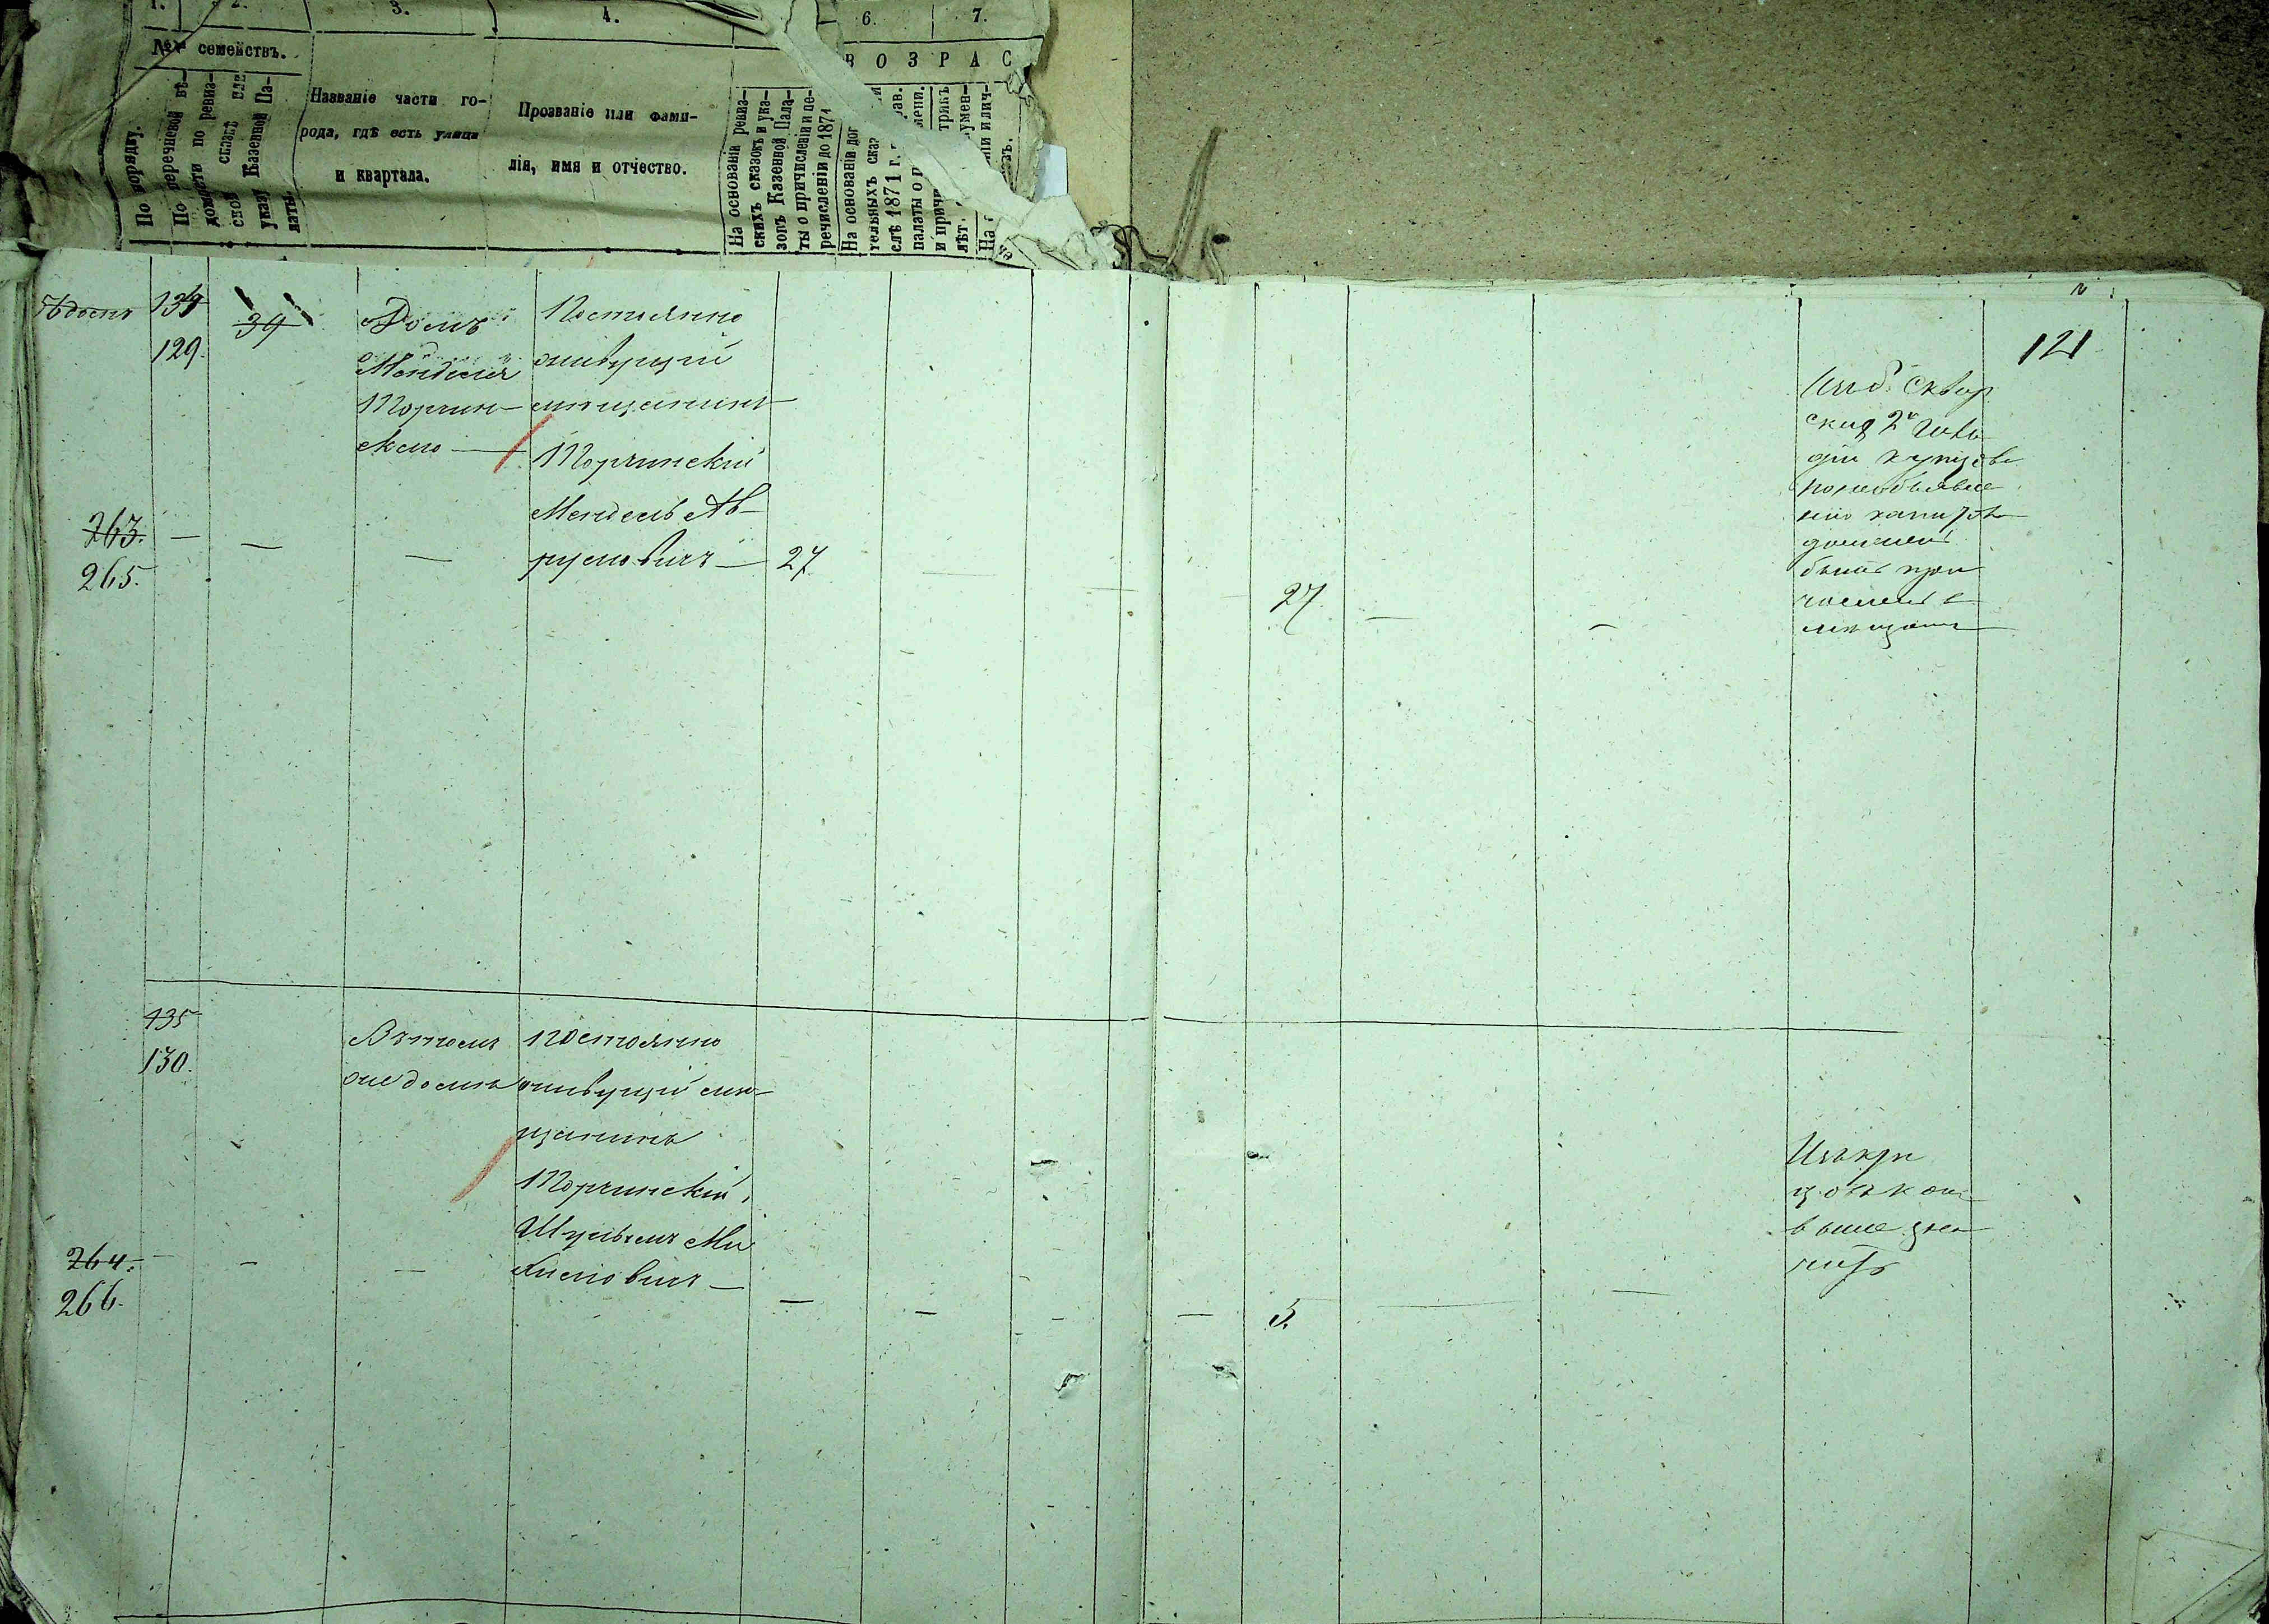 1. 2. 3. 4. 6. 7.
№№ семействъ.
По порядку.
По перечневой вѣ-
домости по ревиз-
ской сказкѣ или
указу Казенной Па-
латы.
Названіе части го-
рода, гдѣ есть улица
и квартала.
Прозваніе или фами-
лія, имя и отчество.
ВОЗРАС
На основаніи ревиз-
скихъ сказокъ и ука-
зовъ Казенной Пала-
ты о причисленіи и пе-
речисленіи до 1871
На основаніи доп
тельныхъ сказ
слѣ 1871 г.
палаты о
и причи
лѣт.
На
134
129.
39
Домъ
Менделя
Торчин-
скаго
Постоянно
живущій
мѣщанинъ
Торчинскій
Мендель Ав-
румовичъ
263.
265.
27
27
121
Изъ Сквир
скихъ 2й гиль
діи купцовъ
по необъявле
нію капитала
долженъ
быть при
численъ въ
мѣщане
135
130.
Въ томъ
же домѣ
Постоянно
живущій мѣ-
щанинъ
Торчинскій
Шулимъ Ми
хилевичъ
264.
266.
5.
выше зна
читъ